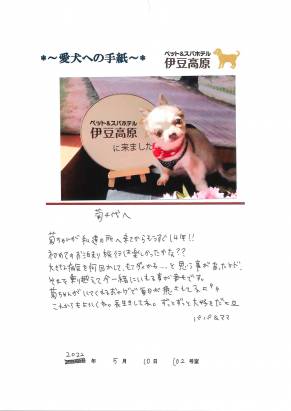 *～愛犬への手紙～*
ペット&スパホテル
伊豆高原
ペット&スパホテル
伊豆高原
に来ました
菊千代へ
菊ちゃんが私達の所へ来てからもうすぐ14年!!
初めてのお泊まり旅行は楽しかったかな??
大きな病気を何回かして、もうダメかも…と思う事があったけど、
それを乗り越えて今一緒にいれる事が幸せです。
菊ちゃんがいてくれるおかげで毎日が癒されてるよ
これからもよろしくね。長生きしてね。ずっとずっと大好きだよ
パパ&ママ
2022年 5月 10日 102号室